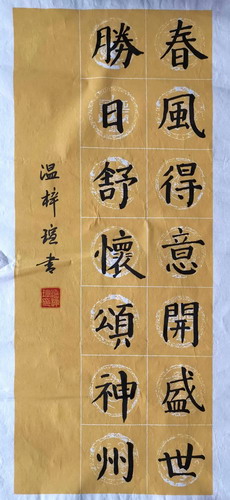 春風得意開盛世
勝日舒懷頌神州
温梓瑄書